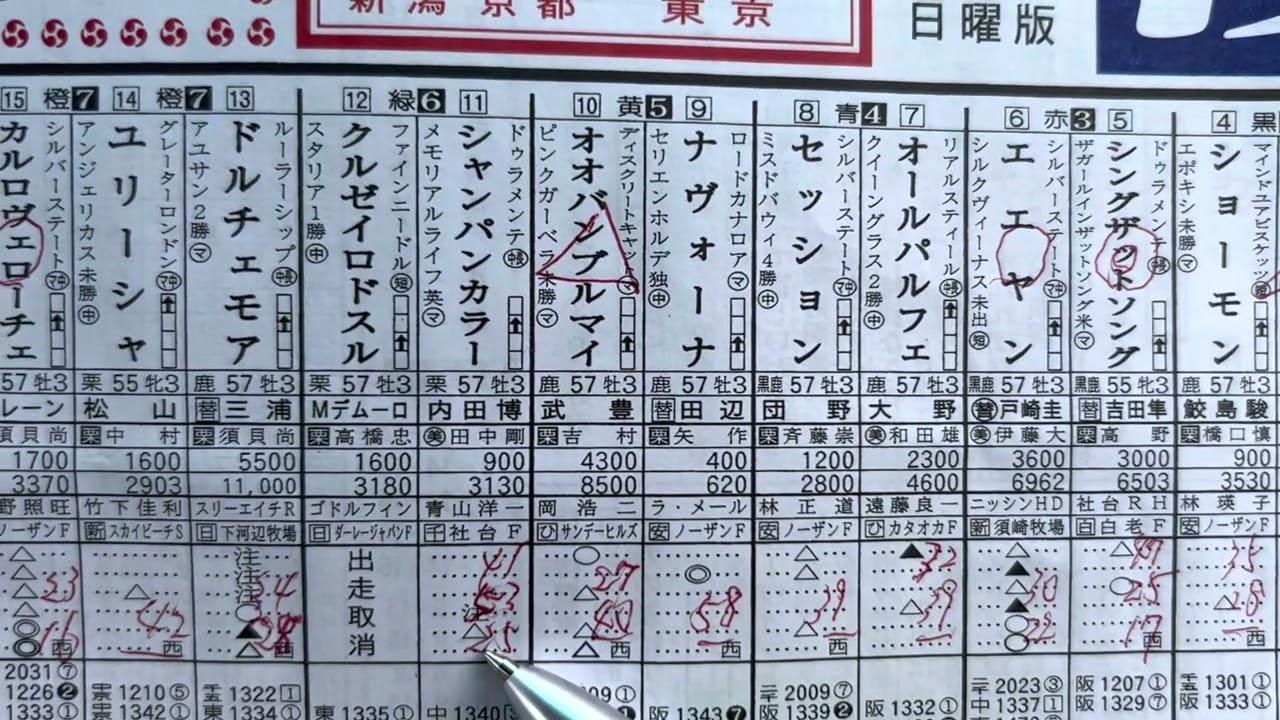 新潟 京都 東京
日曜版
15 橙7 14 橙7 13 12 緑6 11 10 黄5 9 8 青4 7 6 赤3 5 4 黒
シルバーステート
カルロヴェローチェ
アンジェリカス 未勝
グレーターロンドン
ユリーシャ
アユサン2勝
ルーラーシップ
ドルチェモア
スタリア1勝
ファインニードル
クルゼイロドスル
メモリアルライフ英
ドゥラメンテ
シャンパンカラー
ピンクガーベラ未勝
ディスクリートキャット
オオバンブルマイ
セリエンホルデ 独
ロードカナロア
ナヴォーナ
ミスドバウィ4勝
シルバーステート
セッション
クイーングラス2勝
リアルスティール
オールパルフェ
シルクヴィーナス 未出
シルバーステート
エエヤン
ザガールインザットソング米
ドゥラメンテ
シングザットソング
エポキシ未勝
マインドユアビスケッツ
ショーモン
57 牡3 栗 55 牝3 鹿 57 牡3 栗 57 牡3 栗 57 牡3 鹿 57 牡3 鹿 57 牡3 黒鹿 57 牡3 鹿 57 牡3 黒鹿 57 牡3 黒鹿 55 牝3 鹿 57 牡3
レーン 松山 替三浦 Mデムーロ 内田博 武豊 替田辺 団野 大野 替戸崎圭 替吉田隼 鮫島駿
須貝尚 栗中村 栗須貝尚 栗高橋忠 美田中剛 栗吉村 栗矢作 栗斉藤崇 美和田雄 美伊藤大 栗高野 栗橋口慎
1700 1600 5500 1600 900 4300 400 1200 2300 3600 3000 900
3370 2903 11,000 3180 3130 8500 620 2800 4600 6962 6503 3530
野照旺 竹下佳利 スリーエイチR ゴドルフィン 青山洋一 岡浩二 ラ・メール 林正道 遠藤良一 ニッシンHD 社台RH 林瑛子
ノーザンF 新スカイビーチS 日下河辺牧場 日ダーレージャパンF 千社台F ひサンデーヒルズ 安ノーザンF 安ノーザンF ひカタオカF 新須崎牧場 白白老F 安ノーザンF
出走取消
2031⑦
1226❷ 1210⑤ 1322 1 2009⑦ 2023③ 阪1207① 1301①
1333① 1342① 1334① 東1335① 中1340 阪1343❼ 阪1339❷ 阪1332① 中1337 1 阪1329⑦ 阪1333①